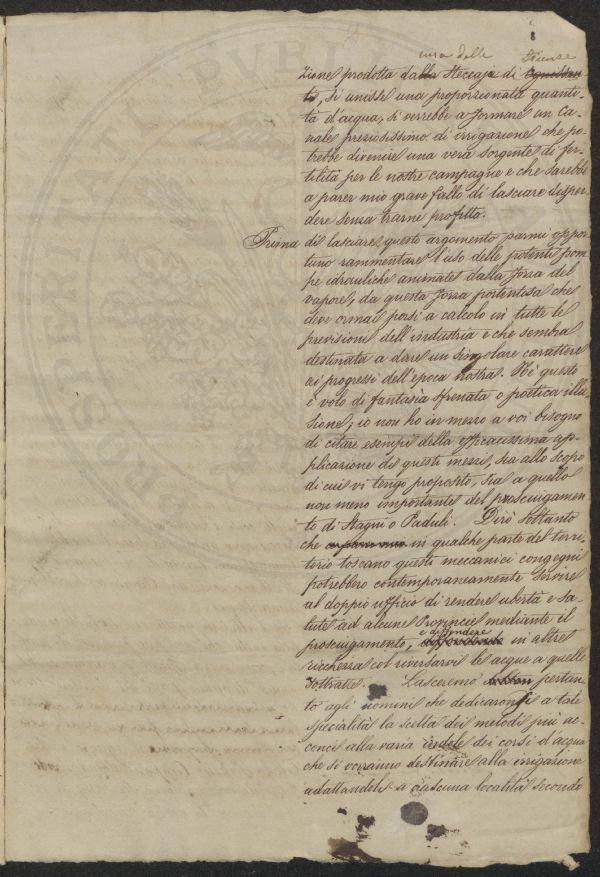 cura delle Firenze
zione prodotta dalla Stecaja di Ognissan
ti, si unisse una proporzionata quanti-
tà d'acqua, si verrebbe a formare un Ca-
nale preziosissimo di irrigazione che po-
trebbe divenire una vera sorgente di fer-
tilità per le nostre campagne e che sarebbe
a parer mio grave fallo di lasciare disper-
dere senza trarne profitto.
Prima di lasciare questo argomento parmi oppor
tuno rammentare l'uso delle potenti pom
pe idrauliche animate dalla forza del
vapore, da questa forza portentosa che
deve ormai porsi a calcolo in tutte le
previsioni dell'industria e che sembra
destinata a dare un singolare carattere
ai progressi dell'epoca nostra. Nè questo
è volo di fantasia sfrenata o poetica illu-
sione, io non ho in mezzo a voi bisogno
di citare esempi della efficacissima ap-
plicazione di questi mezzi, sia allo scopo
di cui vi tengo proposito, sia a quello
non meno importante del prosciugamen
to di Stagni o Paduli. Dirò soltanto
che in qualche parte del terri
torio toscano questi meccanici congegni
potrebbero contemporaneamente servire
al doppio ufficio di rendere ubertà e sa
lute ad alcune Provincie mediante il
e diffondere
prosciugamento, in altre
ricchezza col riversarvi le acque a quelle
sottratte. Lasceremo pertan
to agli uomini che dedicaronsi a tale
specialità la scelta dei metodi più ac
conci alla varia indole dei corsi d'acqua
che si vorranno destinare alla irrigazione
adattandoli a ciascuna località secondo